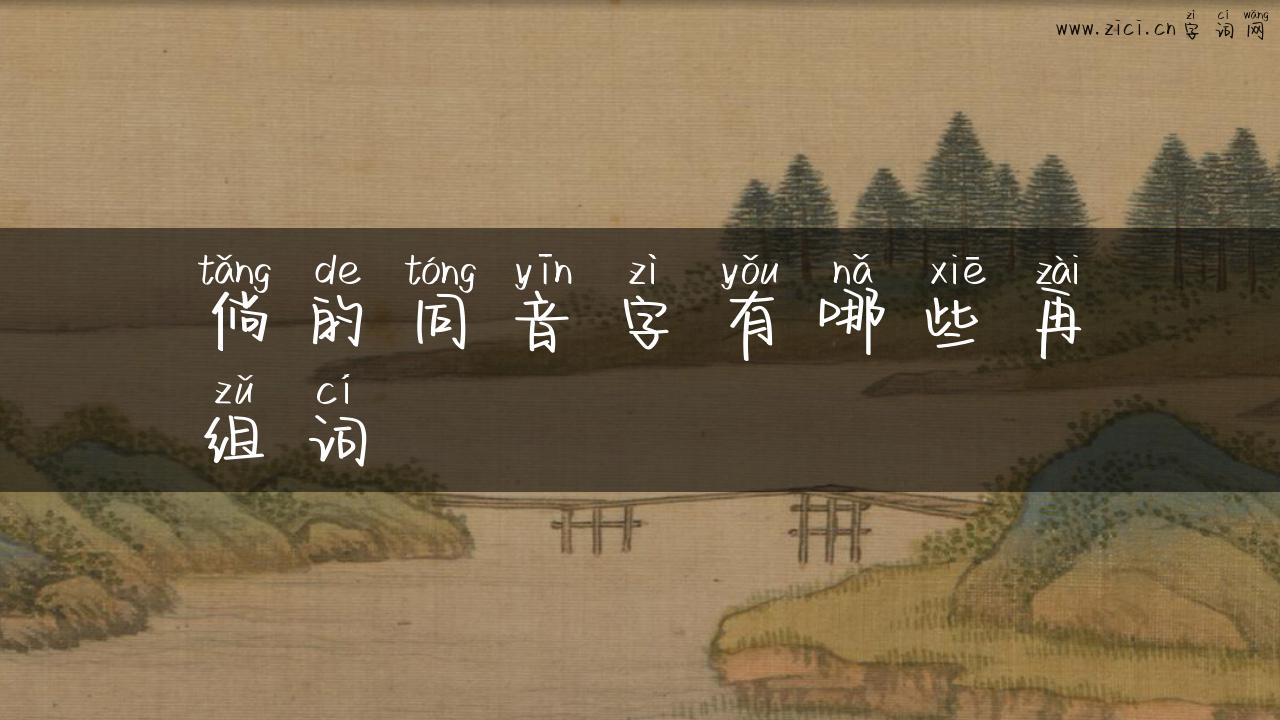 zì cí wǎng
www.zici.cn 字 词 网
tǎng de tóng yīn zì yǒu nǎ xiē zài
倘 的 同 音 字 有 哪 些 再
zǔ cí
组 词